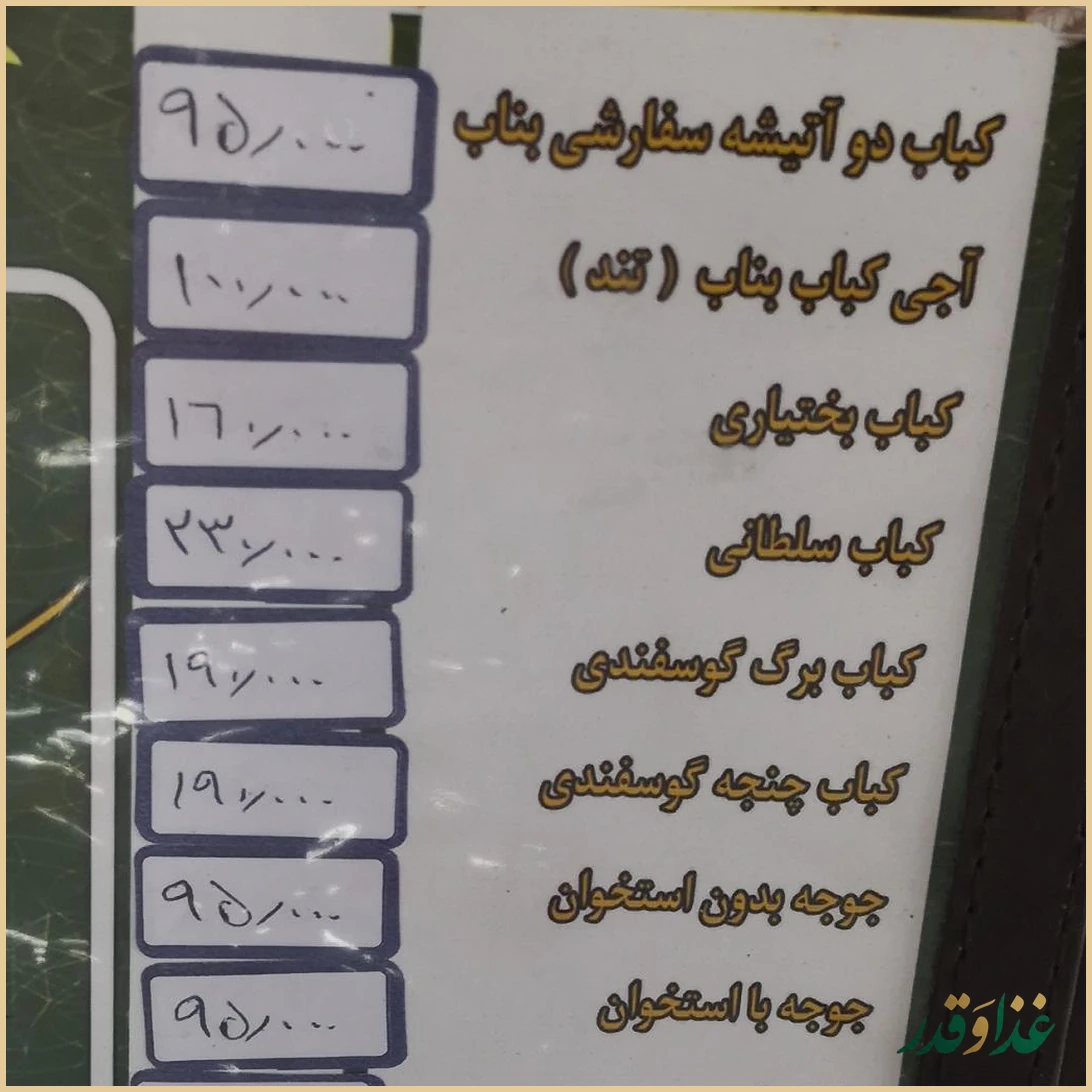 کباب دو آتیشه سفارشی بناب ۹۵/۰۰۰
آجی کباب بناب ( تند ) ۱۰۰/۰۰۰
کباب بختیاری ۱۶۰/۰۰۰
کباب سلطانی ۲۳۰/۰۰۰
کباب برگ گوسفندی ۱۹۰/۰۰۰
کباب چنجه گوسفندی ۱۹۰/۰۰۰
جوجه بدون استخوان ۹۵/۰۰۰
جوجه با استخوان ۹۵/۰۰۰
غذا وَ قدر